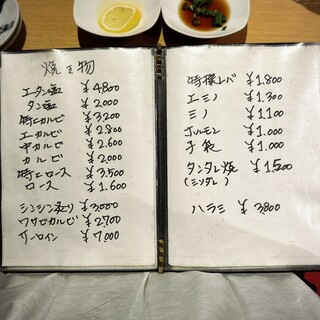 焼き物
エタン塩 ¥4800
タン塩 ¥2.000
特エカルビ ¥3.200
エカルビ ¥2.800
中カルビ ¥2.600
カルビ ¥2.000
特エロース ¥3.500
ロース ¥1.600
シンシン炙り ¥3.000
ワサビカルビ ¥2.700
サーロイン ¥7.000
特撰レバ ¥1.800
エミノ ¥1.300
ミノ ¥1.100
ホルモン ¥1.000
子袋 ¥1.000
タンタレ焼 ¥1.500
(ミソダレ)
ハラミ ¥3.800